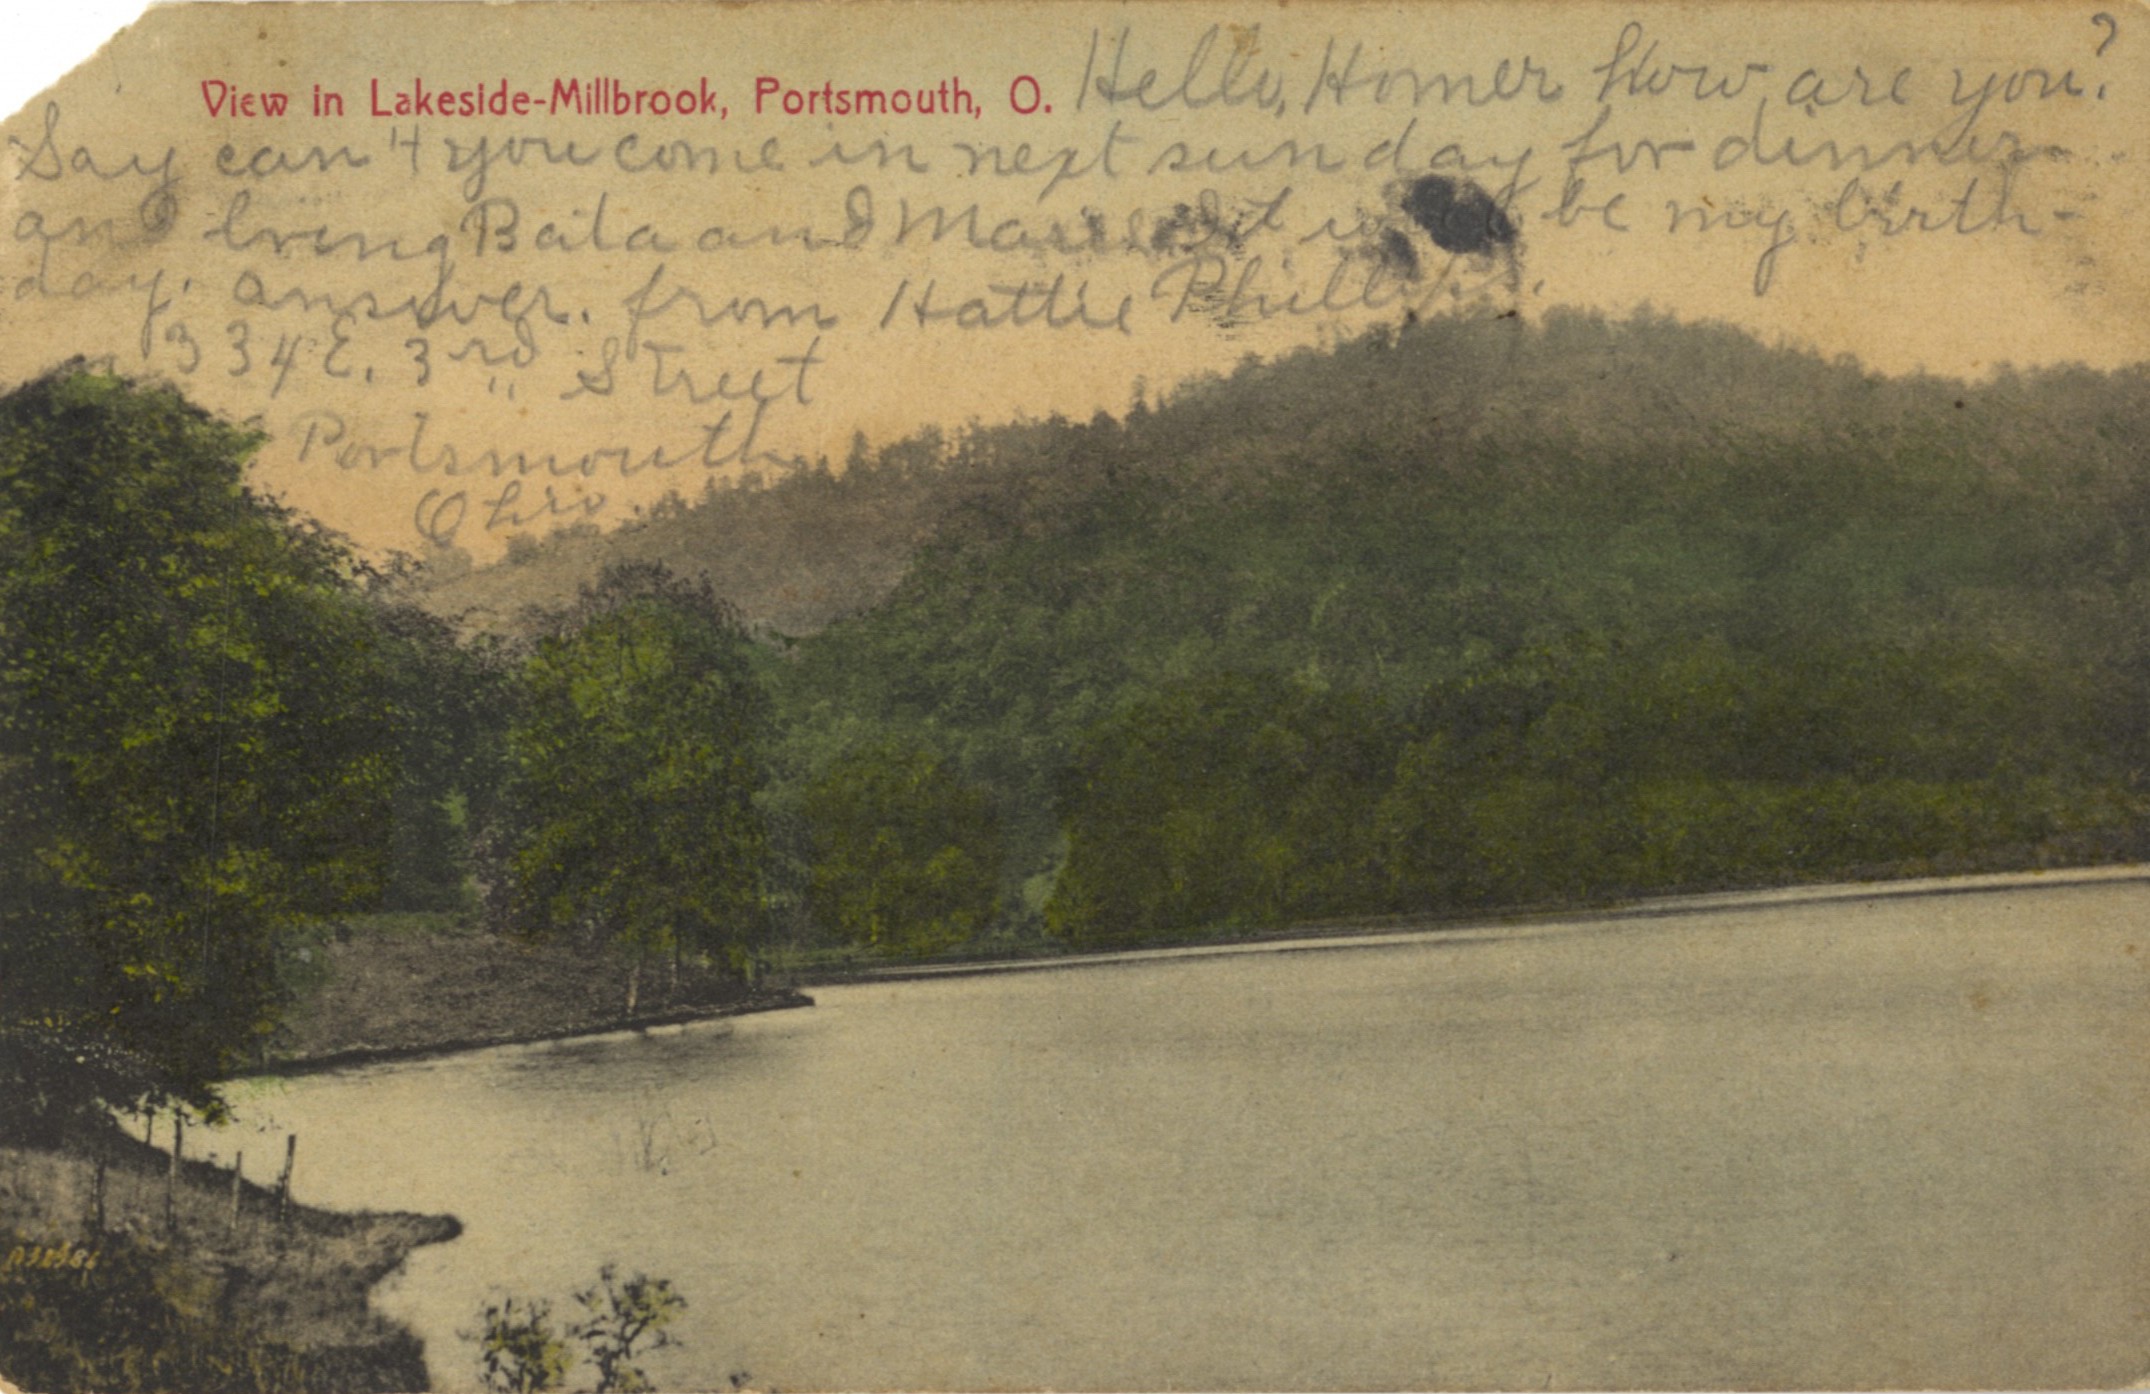 View in Lakeside-Millbrook, Portsmouth, O. Hello, Homer how are you?
Say can't you come in next sunday for dinner
and bring Baila and Marie It will be my birth-
day. answer. from Hattie Phillips.
334 E. 3rd Street
Portsmouth
Ohio.